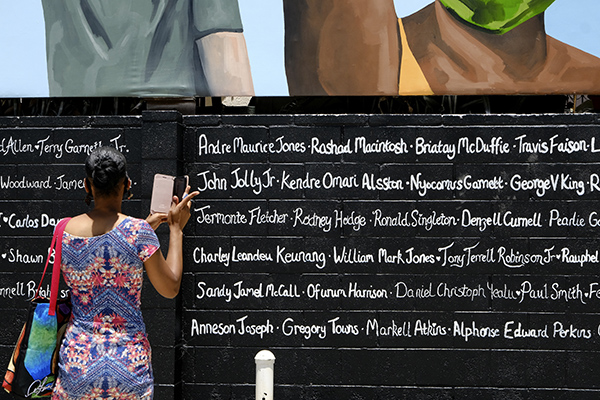 Allen ♥ Terry Garnett Jr.
Andre Maurice Jones · Rashad Macintosh · Briatay McDuffie · Travis Faison ·
Woodward
John Jolly Jr · Kendre Omari Alsston · Nyocomus Garnett · George V King ·
Carlos
Jermonte Fletcher · Rodney Hodge · Ronald Singleton · Denzell Curnell · Pearlie
Shawn
Charley Leandeu Keunang · William Mark Jones ♥ Tony Terrell Robinson Jr ♥ Rauphel
Sandy Jamel McCall · Ofurum Harrison · Daniel Christoph Yealu ♥ Paul Smith ♥
Anneson Joseph · Gregory Towns · Markell Atkins · Alphonse Edward Perkins ·